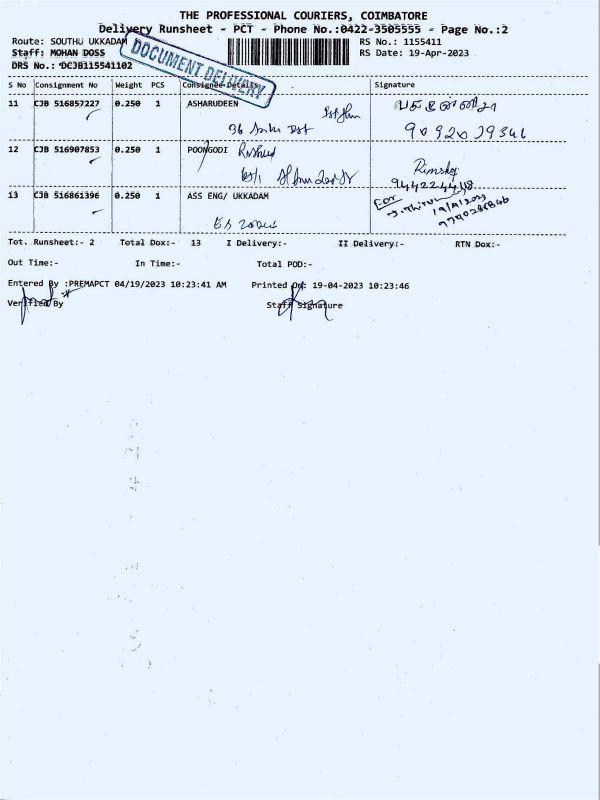 THE PROFESSIONAL COURIERS, COIMBATORE
Delivery Runsheet - PCT - Phone No.:0422-3505555 - Page No.:2
Route: SOUTHU UKKADAM
RS No.: 1155411
Staff: MOHAN DOSS
RS Date: 19-Apr-2023
DRS No.: DCJB115541102
DOCUMENT DELIVERY
S No Consignment No Weight PCS Consignee Details Signature
11 CJB 516857227 0.250 1 ASHARUDEEN
36
12 CJB 516907853 0.250 1 POONGODI
9442244118
13 CJB 516861396 0.250 1 ASS ENG/ UKKADAM
For
19/4/2023
Tot. Runsheet:- 2 Total Dox:- 13 I Delivery:- II Delivery:- RTN Dox:-
Out Time:- In Time:- Total POD:-
Entered By :PREMAPCT 04/19/2023 10:23:41 AM Printed On: 19-04-2023 10:23:46
Verified By Staff Signature